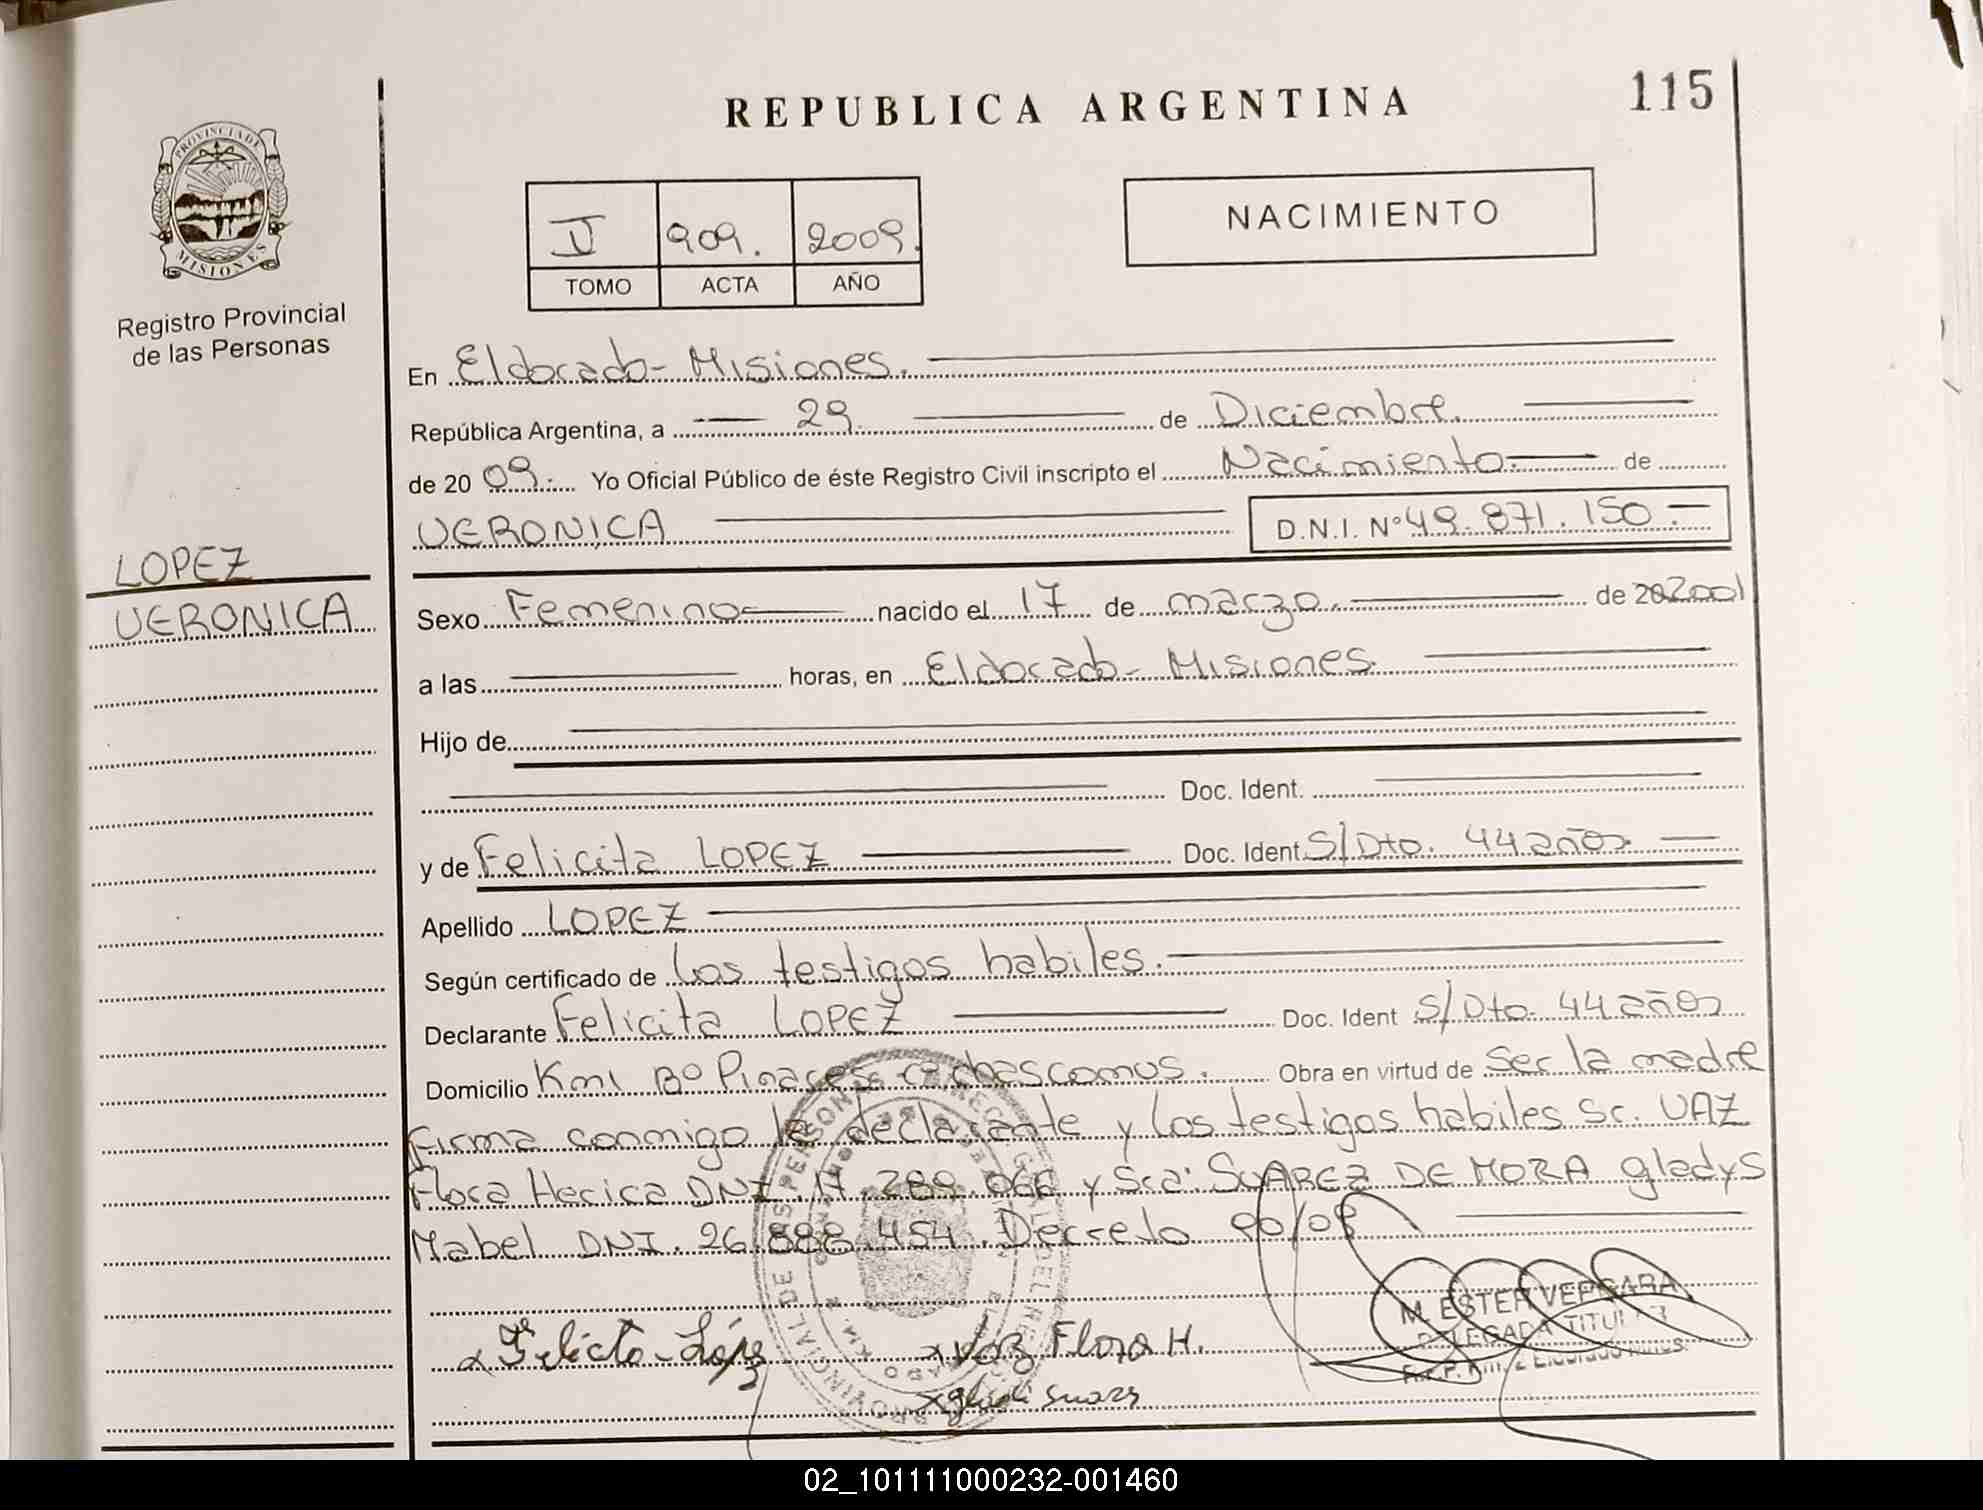 REPUBLICA ARGENTINA
115
PROVINCIA DE
MISIONES
Registro Provincial
de las Personas
II 909. 2009.
TOMO ACTA AÑO
NACIMIENTO
En Eldorado - Misiones.
República Argentina, a 29 de Diciembre.
de 20 09.- Yo Oficial Público de éste Registro Civil inscripto el Nacimiento.- de
VERONICA D.N.I. Nº 49.871.150.-
LOPEZ
VERONICA
Sexo Femenino nacido el 17 de marzo. de 20 2001
a las horas, en Eldorado - Misiones.
Hijo de
Doc. Ident.
y de Felicita LOPEZ Doc. Ident. S/Dto. 44 años
Apellido LOPEZ
Según certificado de los testigos habiles.
Declarante Felicita LOPEZ Doc. Ident S/Dto. 44 años
Domicilio Km1 Bº Pinares Obra en virtud de Ser la madre
Firma conmigo la declarante y los testigos habiles Sr. VAZ
Flora Herica DNI. 17.289.066 y Sra: SUAREZ DE MORA gladys
Mabel DNI. 26.888.454. Decreto 90/09
M. ESTER VERGARA
DELEGADA TITULAR
x Felicita López
x Vaz Flora H.
02_101111000232-001460